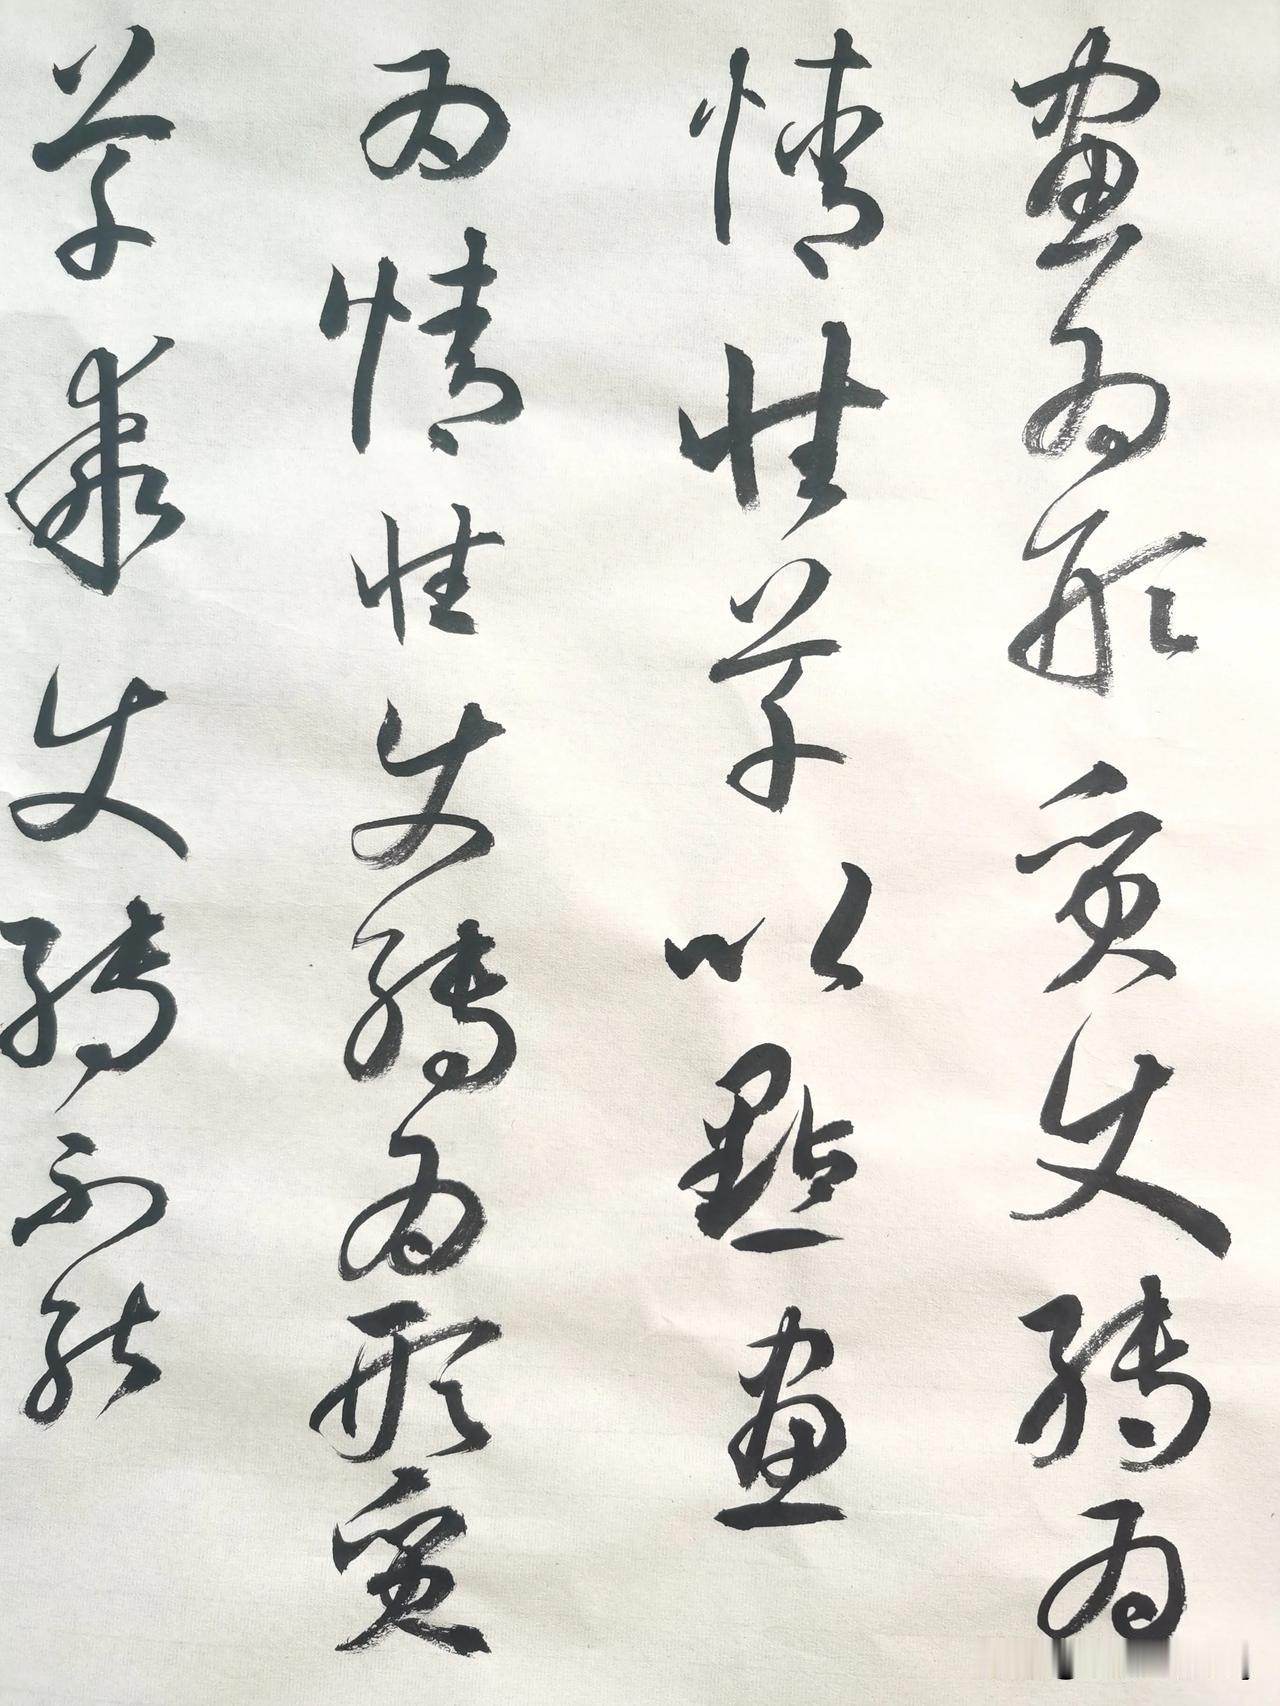 畫為形質使轉為
情性草以點畫
為情性使轉為形質
草乖使轉不能